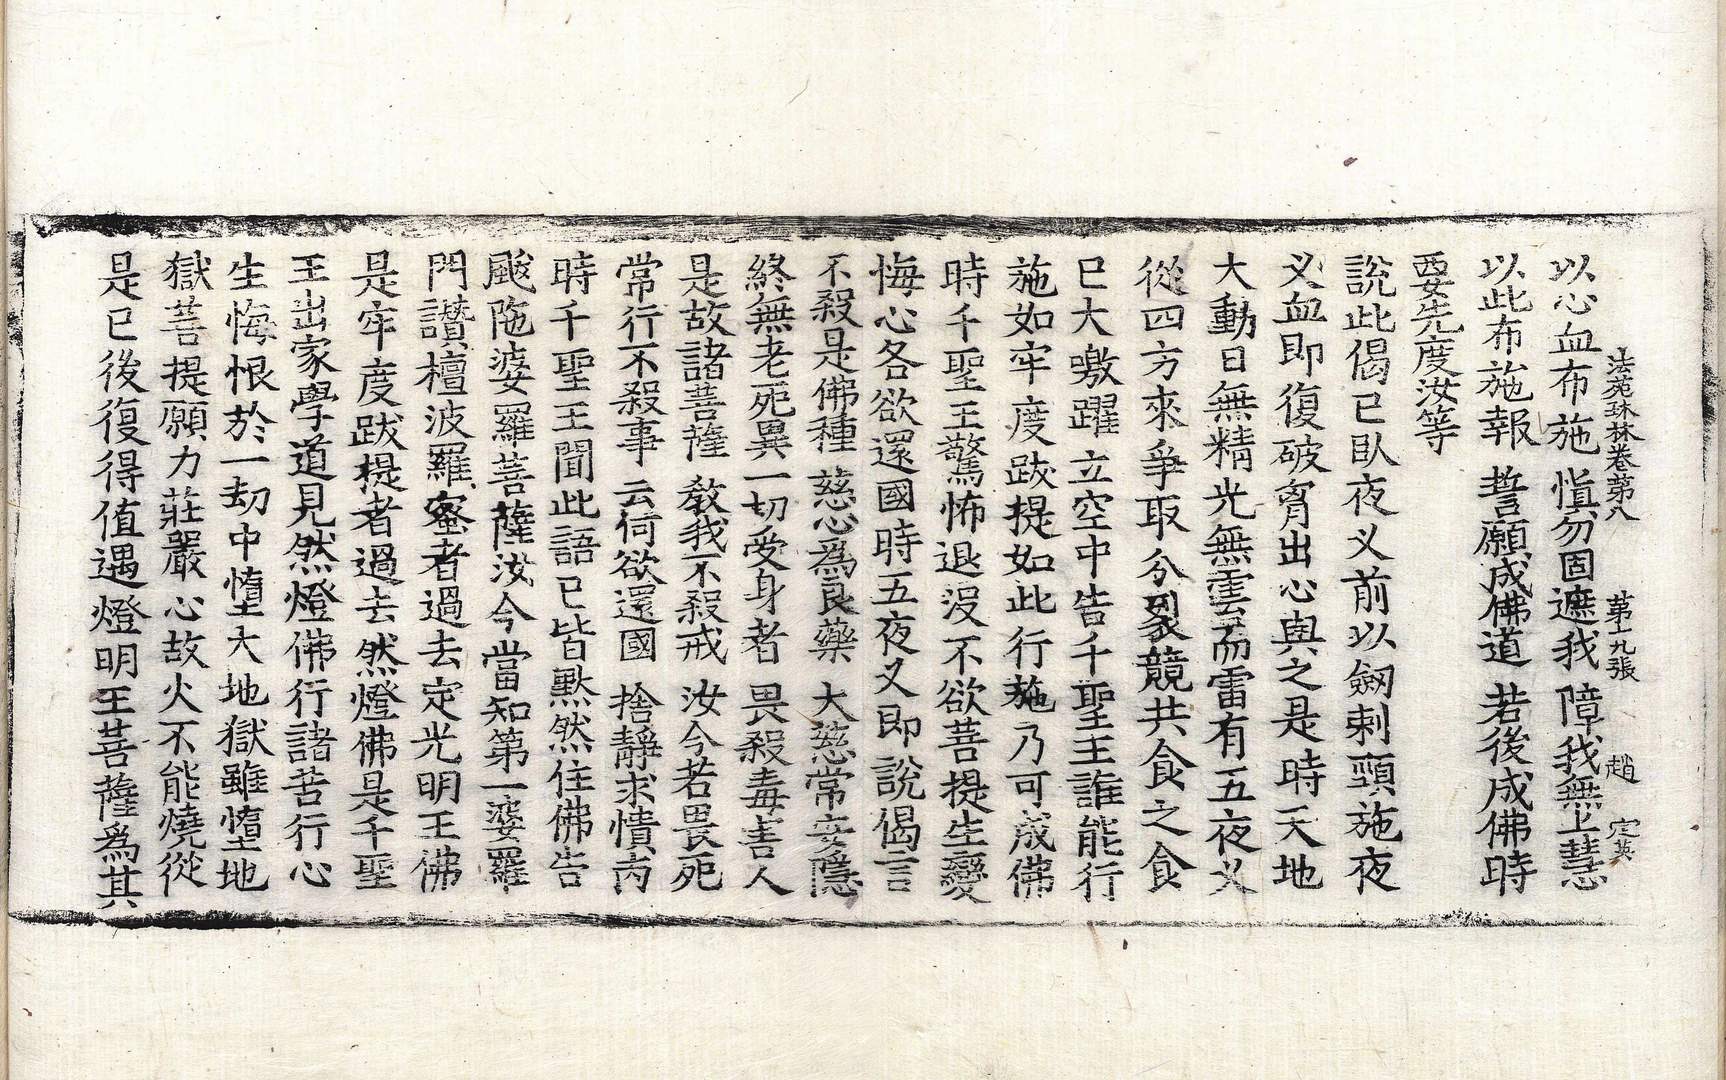 法苑珠林卷第八 第十九張 趙 定英
以心血布施 慎勿固遮我 障我無上慧
以此布施報 誓願成佛道 若後成佛時
要先度汝等
說此偈已臥夜叉前以劒刺頸施夜
叉血即復破胷出心與之是時天地
大動日無精光無雲而雷有五夜叉
從四方來爭取分裂競共食之食
已大噭躍立空中告千聖王誰能行
施如牢度跋提如此行施乃可成佛
時千聖王驚怖退沒不欲菩提生變
悔心各欲還國時五夜叉即說偈言
不殺是佛種 慈心為良藥 大慈常安隱
終無老死異一切受身者 畏殺毒害人
是故諸菩薩 敎我不殺戒 汝今若畏死
常行不殺事 云何欲還國 捨靜求憒丙
時千聖王聞此語已皆默然住佛告
颰陁婆羅菩薩汝今當知第一婆羅
門讚檀波羅蜜者過去定光明王佛
是牢度跋提者過去然燈佛是千聖
王出家學道見然燈佛行諸苦行心
生悔恨於一劫中墮大地獄雖墮地
獄菩提願力莊嚴心故火不能燒從
是已後復得值遇燈明王菩薩為其